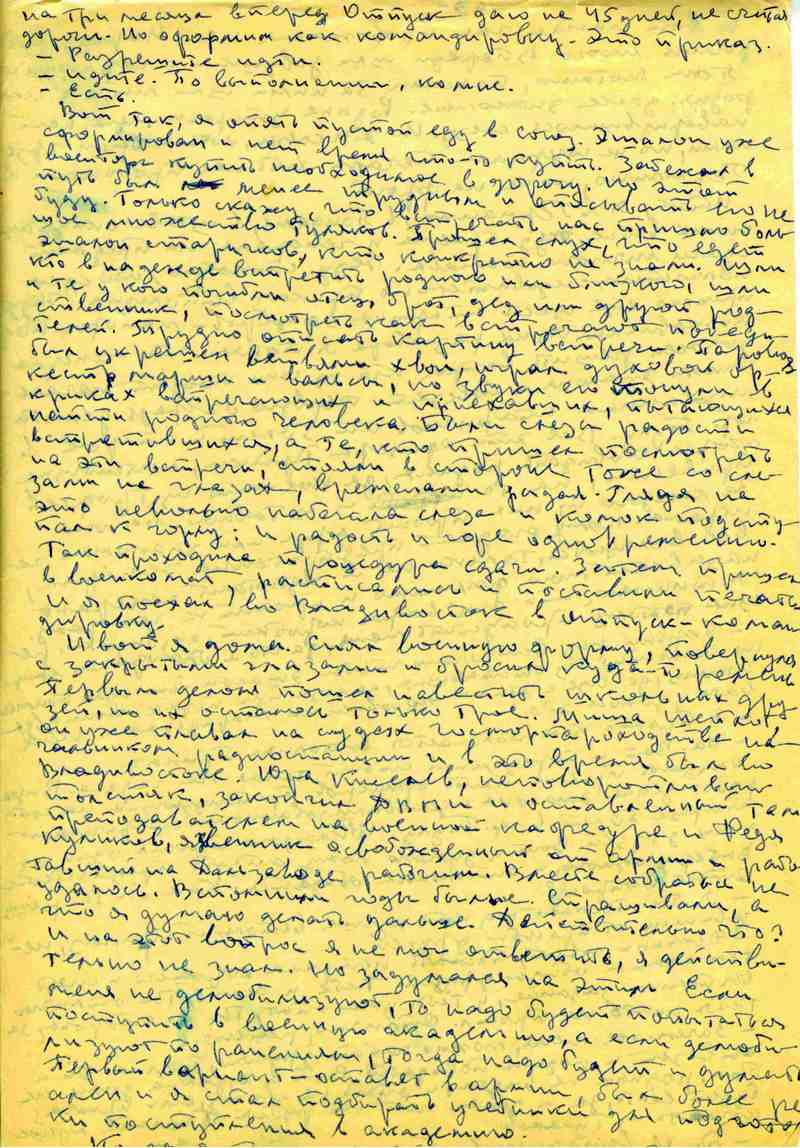 на три месяца вперед. Отпуск даю не 45 дней, не считая
дороги. Но оформим как командировку. Это приказ.
- Разрешите идти.
- Идите. По выполнении, ко мне.
- Есть.
Вот так, я опять пустой еду в союз. Эшалон уже
сформирован и нет время что-то купить. Забежал в
военторг купить необходимое в дорогу. Но этот
путь был менее трудным и описывать его не
буду. Только скажу, что встречать нас пришло боль-
шое множество туляков. Прошел слух, что едет
эшалон старичков, кто конкретно не знали. Шли
кто в надежде встретить родного или близкого, шли
и те у кого погибли отец, брат, дед или другой род-
ственник, посмотреть как встречают победи-
телей. Трудно описать картину встречи. Паровоз
был украшен ветвями хвои, играл духовой ор-
кестр марши и вальсы, но звуки его тонули в
криках встречающих и приехавших, пытающихся
найти родного человека. Были слезы радости
встретившихся, а те, кто пришел посмотреть
на эти встречи, стояли в стороне тоже со сле-
зами на глазах, временами рыдая. Глядя на
это невольно набегала слеза и комок подсту-
пал к горлу: и радость и горе одновременно.
Так проходила процедура сдачи. Затем пришел
в военкомат, расписались и поставили печать
И я поехал во Владивосток в отпуск-коман-
дировку.
И вот я дома. Снял военную форму, повернулся
с закрытыми глазами и бросил куда-то ремень
Первым делом пошел навестить школьных дру-
зей, но их осталось только трое. Миша
он уже плавал на судах госморпароходства на-
чальником радиостанции и в это время был во
Владивостоке. Юра Киселев, неповоротливый
толстяк, закончил ДВПИ и оставленный там
преподавателем на военной кафедре и Федя
Куликов, язвенник освобожденный от армии и рабо-
тавший на Дальзаводе рабочим. Вместе собраться не
удалось. Вспомнили годы былые. Спрашивали, а
что я думаю делать дальше. Действительно что?
И на этот вопрос я не мог ответить, я действи-
тельно не знал. Но задумался на этим. Если
меня не демобилизуют, то надо будет попытаться
поступить в военную академию, а если демоби-
лизуют по ранениям, тогда надо будет и думать
Первый вариант-оставят в армии, был более ре-
ален и я стал подбирать учебники для подготов-
ки поступления в академию.